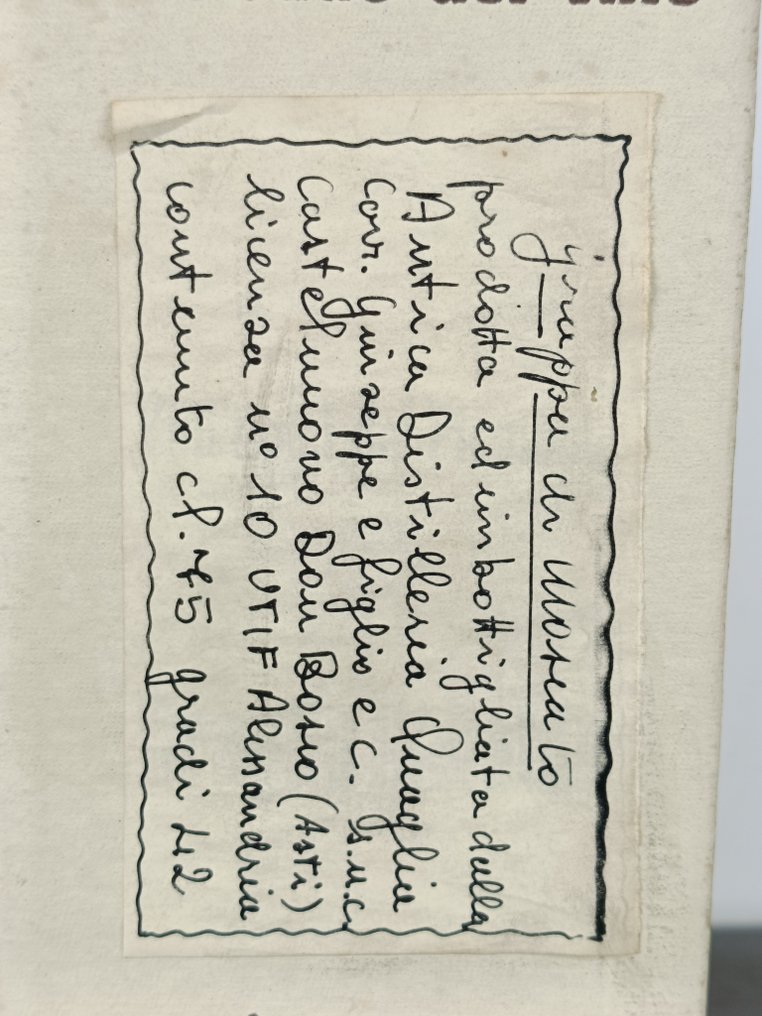 grappa di Moscato
prodotta ed imbottigliata dalla
Antica Distilleria Quaglia
Cav. Giuseppe e figlio e C. s.n.c.
Castelnuovo Don Bosco (Asti)
licenza n° 10 UTIF Alessandria
contenuto cl. 75 gradi 42